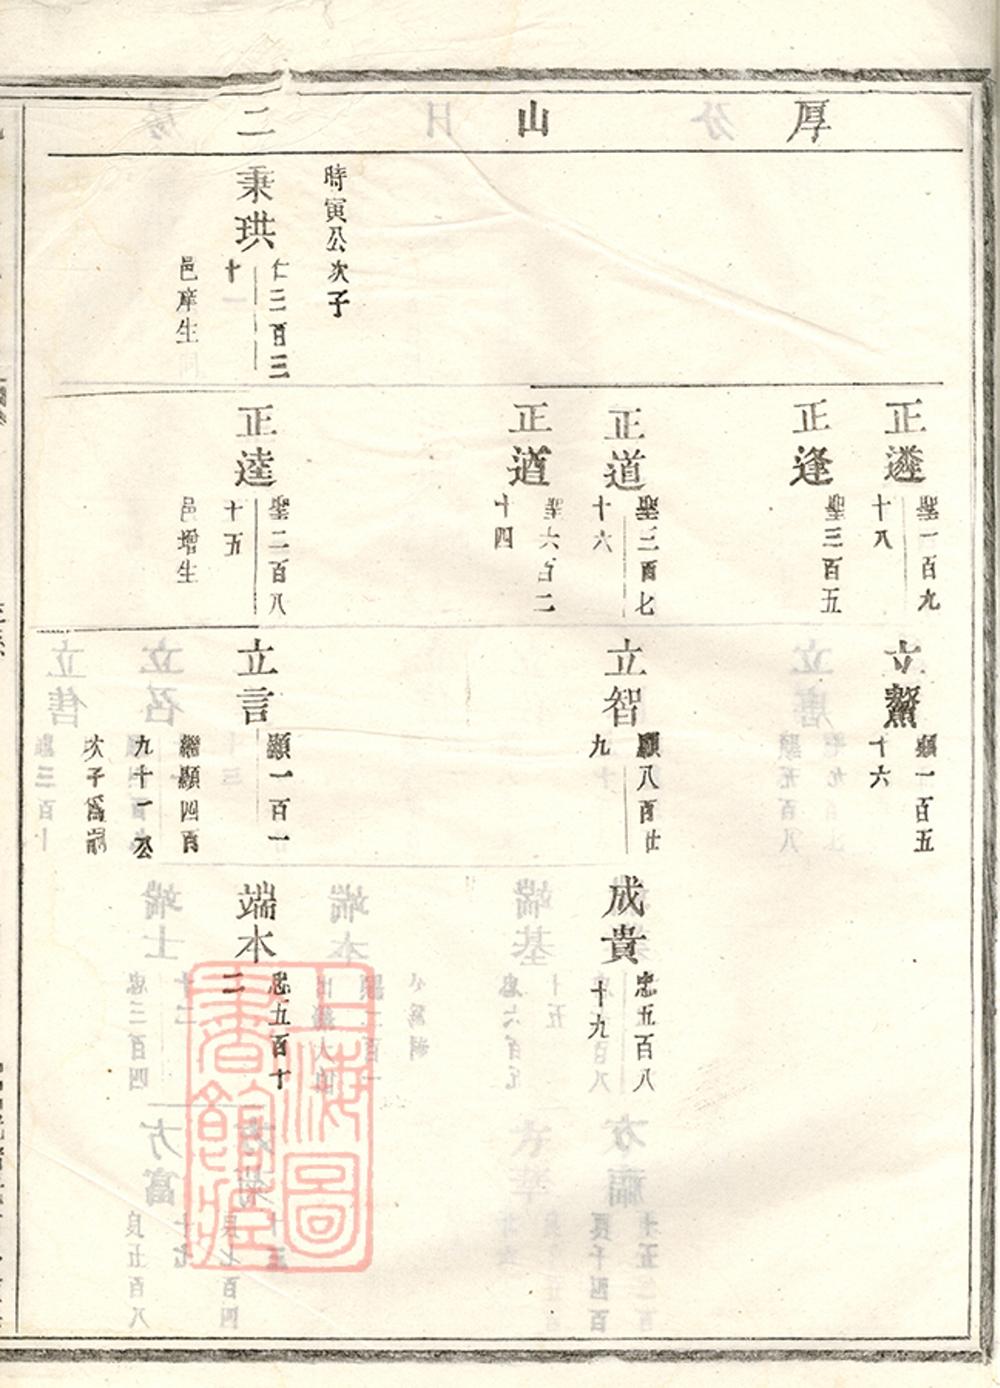 厚山二
時寅公次子
秉珙
仁三百三
十
邑庠生
正
聖一百九
十八
正逢
聖三百五
正道
聖三百七
十六
正遒
聖六百二
十四
正逵
聖二百八
十五
邑增生
立鰲
顯一百五
十六
立智
顯八百廿
九
立言
顯一百一
繼顯四百
九十一公
次子爲嗣
成貴
忠五百八
十九
端本
忠五百十
二
上海圖
書館藏